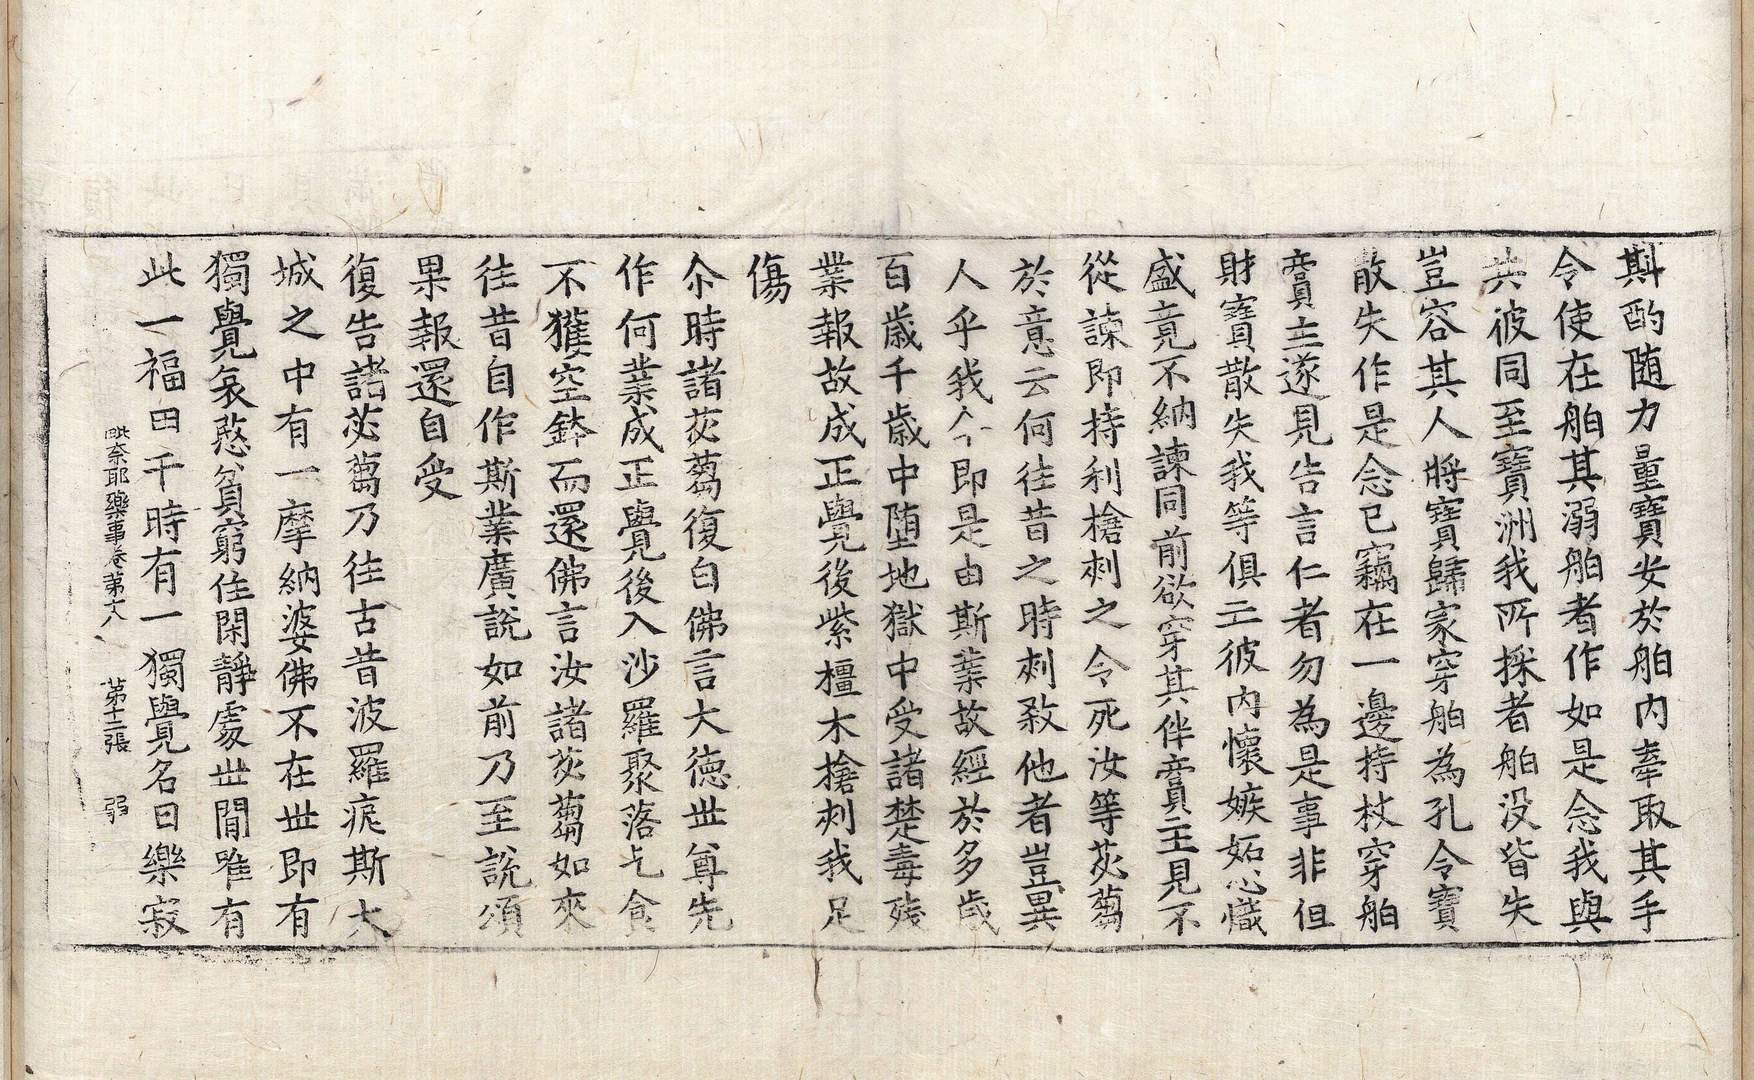 斟酌随力量寶安於舶內牽取其手
令使在舶其溺舶者作如是念我與
共彼同至寶洲我所採者舶没皆失
豈容其人將寶歸家穿舶為孔令寶
散失作是念已竊在一邊持杖穿舶
賣主遂見告言仁者勿為是事非但
財寶散失我等俱亡彼內懷嫉妬心懺
盛竟不納諫同前欲穿其伴賣主見不
從諫即持利槍刺之令死汝等苾蒭
於意云何往昔之時刺敎他者豈異
人乎我今即是由斯業故經於多歲
百歲千歲中堕地獄中受諸楚毒殘
業報故成正覺後紫橿木搶刺我足
傷
尒時諸苾蒭復白佛言大德世尊先
作何業成正覺後入沙羅聚落乞食
不獲空鉢而還佛言汝諸苾蒭如來
往昔自作斯業廣說如前乃至說頌
果報還自受
復告諸苾蒭乃往古昔波羅痆斯大
城之中有一摩納婆佛不在世即有
獨覺哀愍貧窮住閑靜處世間唯有
此一福田千時有一獨覺名曰樂寂
毗奈耶藥事卷第十八 第十三張 弱